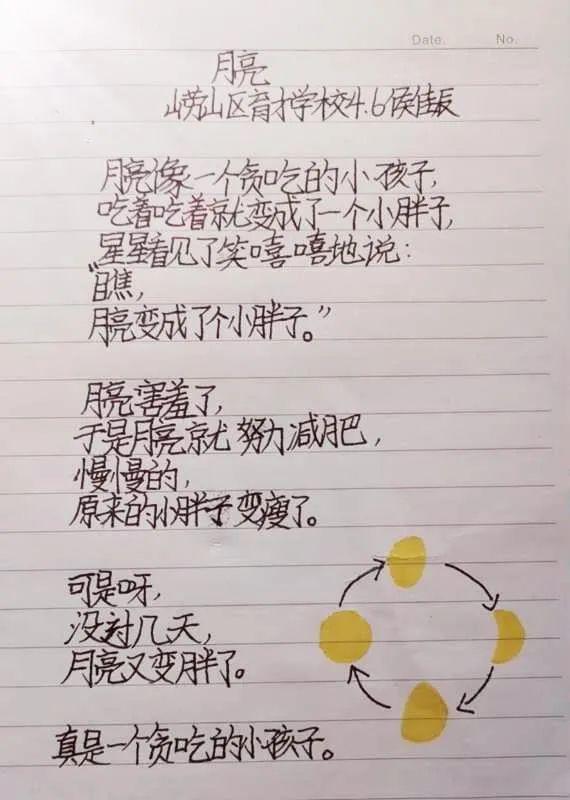 Date.    No.
月亮
崂山区育才学校4.6侯佳辰
月亮像一个贪吃的小孩子,
吃着吃着就变成了一个小胖子,
星星看见了笑嘻嘻地说:
“瞧,
月亮变成了个小胖子。”
月亮害羞了,
于是月亮就努力减肥,
慢慢的,
原来的小胖子变瘦了。
可是呀,
没过几天,
月亮又变胖了。
真是一个贪吃的小孩子。